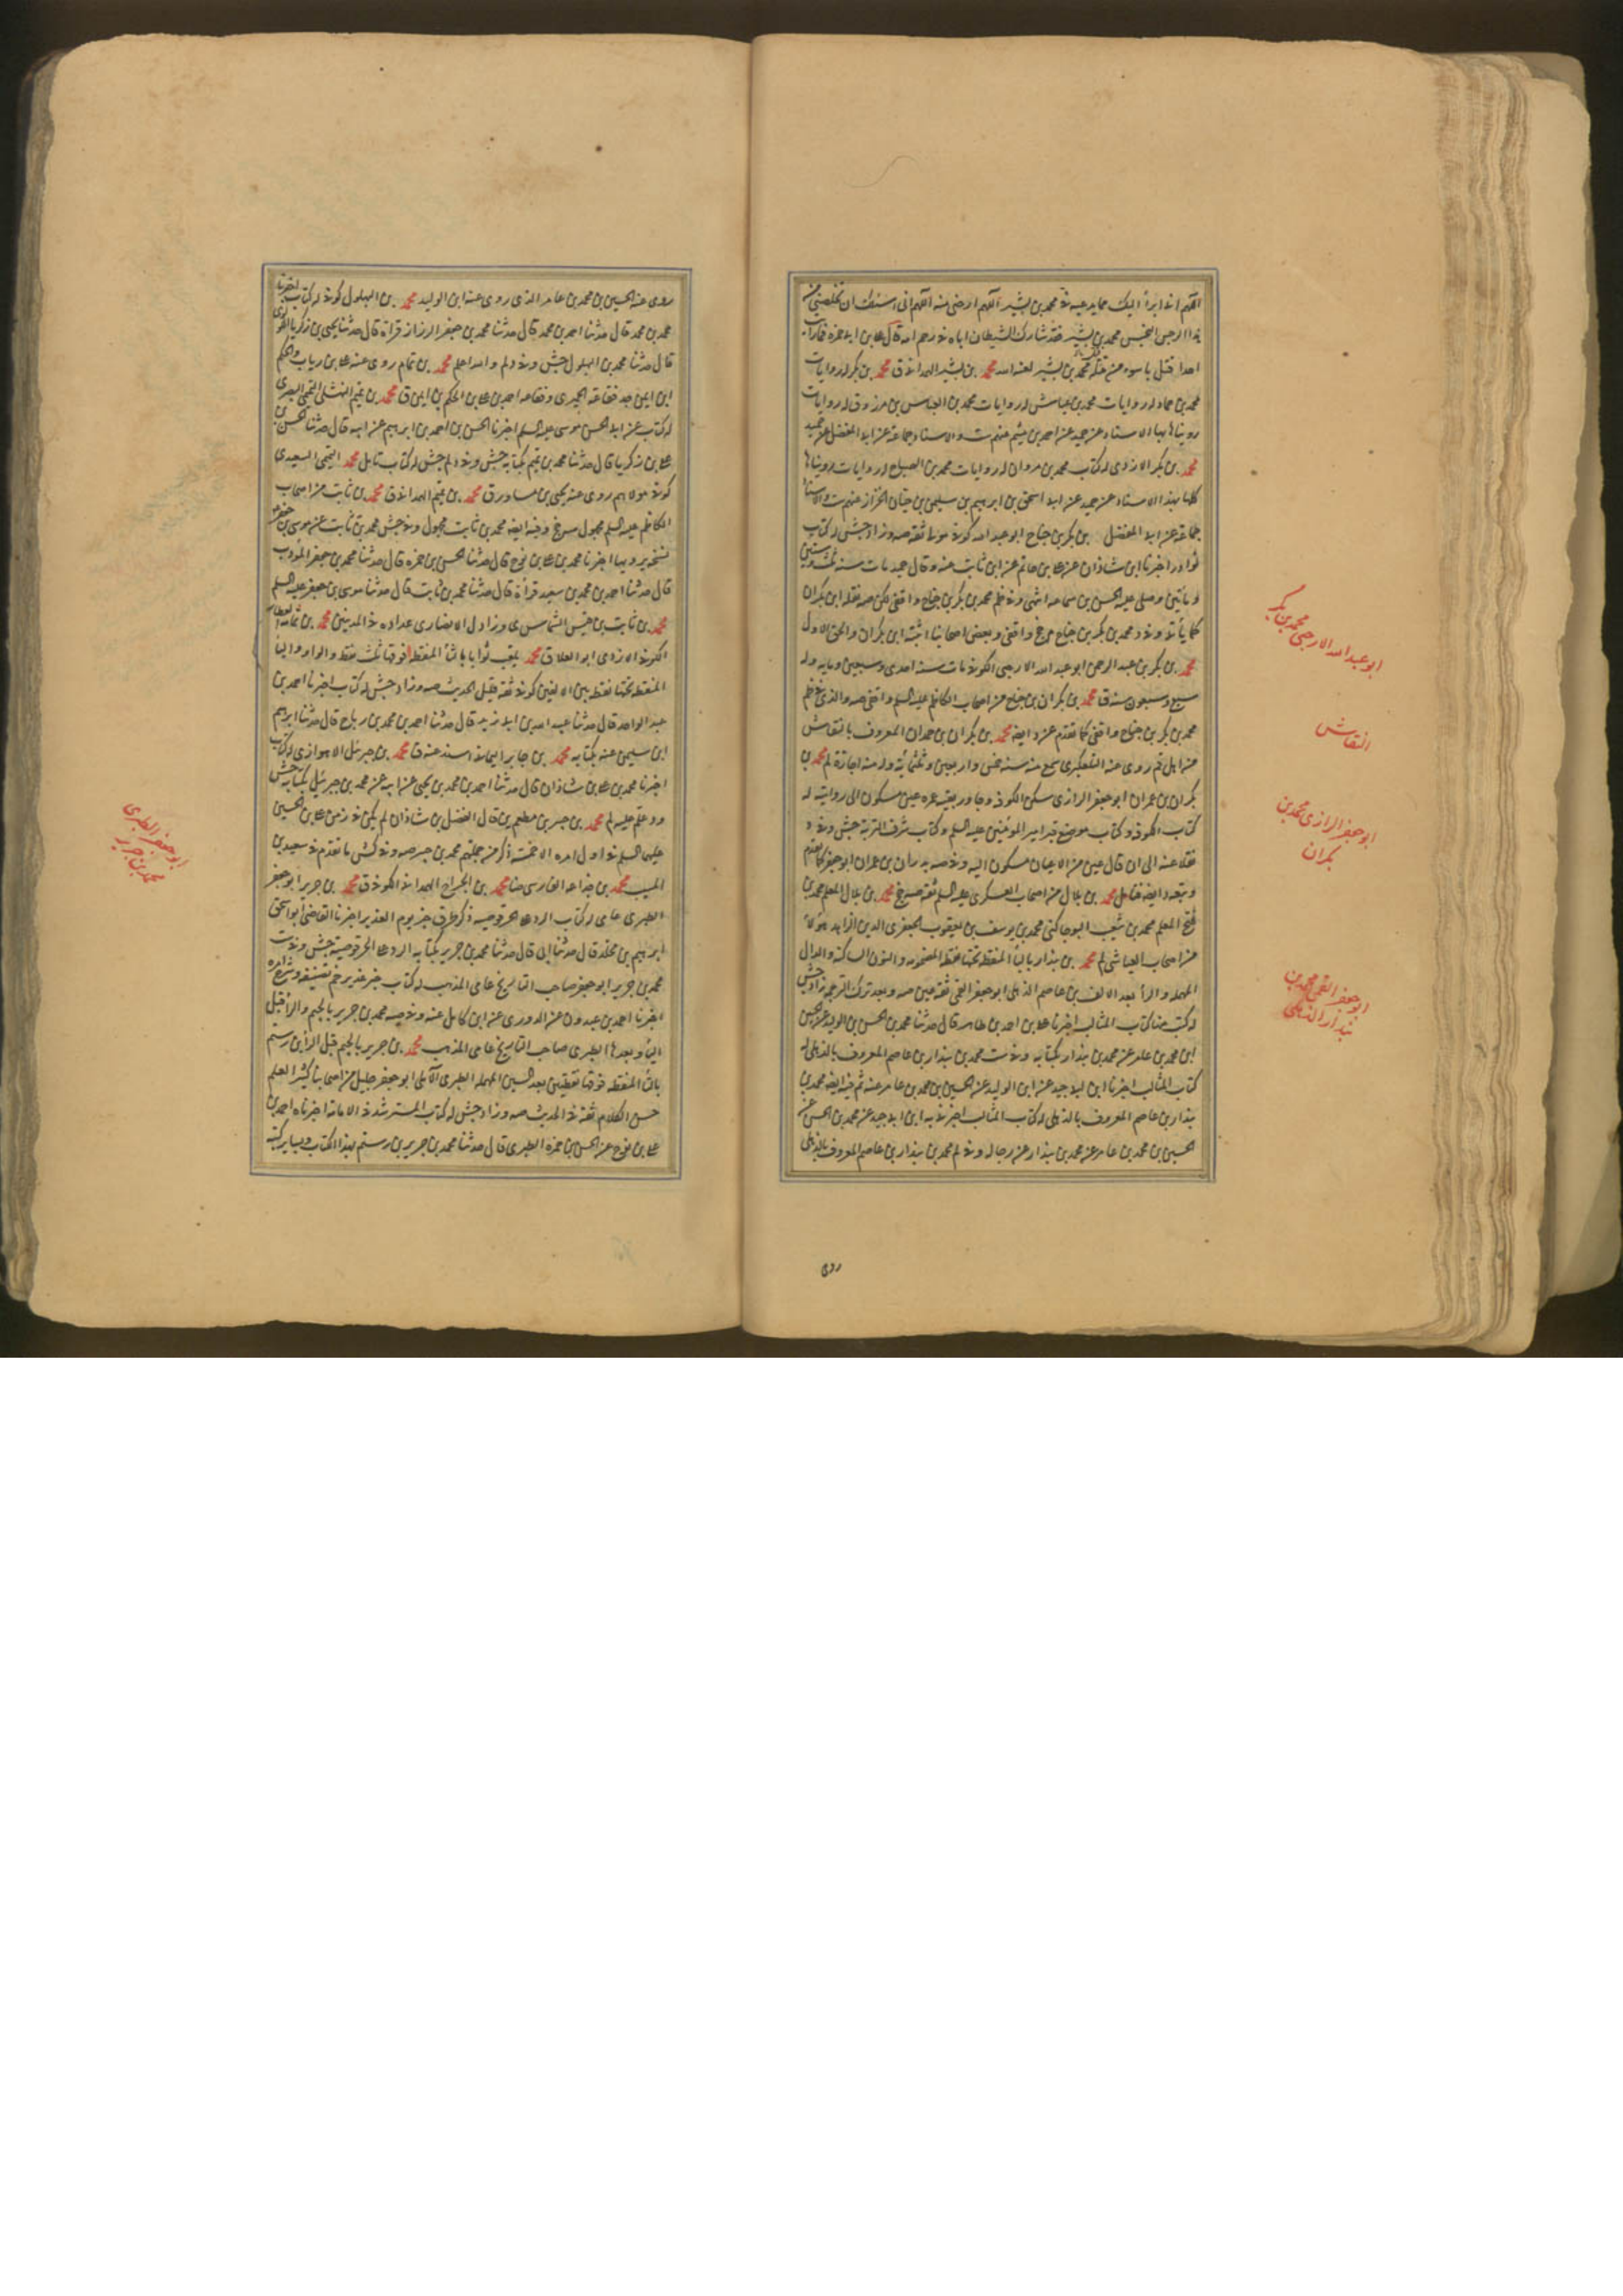 اللهم انی ابرأ الیک مما یدعیه فی محمد بن بشیر اللهم ارحنی منه اللهم انی اسئلک ان تخلصنی من
هذا الرجس النجس محمد بن بشیر فقد شارک الشیطان اباه فی رحم امه قال علی بن ابی حمزه فما رایت
احدا قتل باسوء من قتله محمد بن بشیر لعنه الله محمد بن بشیر الهمدانی ق محمد بن بکر له روایات
محمد بن عباد له روایات محمد بن عباس له روایات محمد بن العباس بن مرزوق له روایات
رویناها بهذا الاسناد عن حمید عن احمد بن میثم عنهم ست والاسناد جماعة عن ابی المفضل عن حمید
محمد بن بکر الازدی له کتاب محمد بن مروان له روایات محمد بن الصباح له روایات رویناها
کلها بهذا الاسناد عن حمید عن ابی اسحق بن ابراهیم بن سلیمن بن حیان الخزاز عنهم ست والاسناد
جماعة عن ابی المفضل بن بکر بن جناح ابو عبد الله کوفی مولی ثقة صه وزاد جش له کتاب
نوادر اخبرنا ابن شاذان عن علی بن حاتم عن ابن ثابت عنه وقال حمید مات سنه ثلث وستین
ومأتین وصلی علیه الحسن بن سماعه انتهی وفی ظم محمد بن بکر بن جناح واقفی لکن صه نقله ابن بکران
کما یأتی وفی د محمد بن بکر بن جناح م جخ واقفی وبعض اصحابنا اثبته ابن بکران والحق الاول
محمد بن بکر بن عبد الرحمن ابو عبد الله الارحبی الکوفی مات سنه احدی وسبعین ومایه وله
سبع وسبعون سنه ق محمد بن بکران بن جناح من اصحاب الکاظم علیه السلم واقفی صه والذی فی جخ ظم
محمد بن بکر بن جناح واقفی کما تقدم عن د ایضا محمد بن بکران بن حمدان المعروف بالنقاش
من اهل قم روی عنه التلعکبری سمع منه سنه خمس واربعین وثلثمائة وله منه اجازة لم محمد بن
بکران بن عمران ابو جعفر الرازی سکن الکوفه وجاور بقیه عمره عین مسکون الی روایته له
کتاب الکوفه وکتاب موضع قبر امیر المؤمنین علیه السلم وکتاب شرف التربة جش وفی د
نقلا عنه الی ان قال عین من الاعیان مسکون الیه وفی صه بدران بن عمران ابو جعفر کما تقدم
وتبعه د ایضا فتامل محمد بن بلال من اصحاب العسکری علیه السلم ثقة صه جخ محمد بن بلال المعلم محمد بن
فتح المعلم محمد بن شعیب البوجاکنی محمد بن یوسف بن یعقوب الجعفری الدین الزاهد هولاء
من اصحاب العیاشی لم محمد بن بندار بالبأ المنقطه تحتها نقطه المضمومه والنون الساکنه والدال
المهمله والرأ بعد الالف بن عاصم الذهلی ابو جعفر القمی ثقة عین صه وبعد ترک الترجمه زاد جش
له کتب منها کتاب المثالب اخبرنا علی بن احمد بن طاهر قال حدثنا محمد بن الحسن بن الولید عن الحسین
ابن محمد بن عامر عن محمد بن بندار بکتابه وفی ست محمد بن بندار بن عاصم المعروف بالذهلی له
کتاب المثالب اخبرنا ابن ابی جید عن ابن الولید عن الحسین بن محمد بن عامر عنه ثم فیه ایضا محمد بن
بندار بن عاصم المعروف بالذهلی له کتاب المثالب اخبرنی به ابن ابی جید عن محمد بن الحسن عن
الحسین بن محمد بن عامر عن محمد بن بندار عن رجاله وفی لم محمد بن بندار بن عاصم المعروف بالذهلی
روی
ابو عبد الله الارحبی محمد بن بکر
النقاش
ابو جعفر الرازی محمد بن
بکران
ابو جعفر القمی محمد بن
بندار الذهلی
روی عنه الحسین بن محمد بن عامر الذی روی عنه ابن الولید محمد بن البهلول کوفی له کتاب اخبرنا
محمد بن محمد قال حدثنا احمد بن محمد قال حدثنا محمد بن جعفر الرزاز قراة قال حدثنا یحیی بن زکریا اللولوی
قال حدثنا محمد بن البهلول جش وفی د لم والله اعلم محمد بن تمام روی عنه علی بن ریاب والحکم
ابن ایمن جد فقاعه الخمیری وفقاعه احمد بن علی بن الحکم بن ایمن ق محمد بن تمیم النهشلی التمیمی البصری
له کتاب عن ابی الحسن موسی علیه السلم اخبرنا الحسن بن احمد بن ابراهیم عن ابیه قال حدثنا الحسن بن
علی بن زکریا قال حدثنا محمد بن تمیم بکتابه جش وفی د لم جش له کتاب تامل محمد التمیمی السعیدی
کوفی مولاهم روی عنه یحیی بن مساور ق محمد بن تمیم الهمدانی ق محمد بن ثابت من اصحاب
الکاظم علیه السلم مجهول صه جخ وفیه ایضا محمد بن ثابت مجهول وفی جش محمد بن ثابت عن موسی بن جعفر
نسخه یرویها اخبرنا محمد بن علی بن نوح قال حدثنا الحسن بن حمزه قال حدثنا محمد بن جعفر المؤدب
قال حدثنا احمد بن محمد بن سعید قرأة قال حدثنا محمد بن ثابت قال حدثنا موسی بن جعفر علیه السلم
محمد بن ثابت بن قیس الشماس ی وزاد ل الانصاری عداده فی المدنیین محمد بن
الکوفی الازدی ابو العلا ق محمد یلقب ثوابا بالثأ المنقطه فوقها ثلث نقط والواو والبأ
المنقطه تحتها نقطه بین الالفین کوفی ثقة قلیل الحدیث صه وزاد جش له کتاب اخبرنا احمد بن
عبد الواحد قال حدثنا عبد الله بن ابی زید قال حدثنا احمد بن محمد بن رباح قال حدثنا ابراهیم
ابن سلیمن عنه بکتابه محمد بن جابر الیمانی اسند عنه ق محمد بن جبرئیل الاهوازی له کتاب
اخبرنا محمد بن علی بن شاذان قال حدثنا احمد بن محمد بن یحیی عن ابیه عن محمد بن جبرئیل بکتابه جش
ود علم علیه لم محمد بن جبیر بن مطعم ین قال الفضل بن شاذان لم یکن فی زمن علی بن الحسین
علیهما السلم فی اول امره الا خمسة ذکر من جملتهم محمد بن جبیر صه وفی کش ما تقدم فی سعید بن
المسیب محمد بن جذاعه الفارسی ضا محمد بن الجراح الهمدانی الکوفی ق محمد بن جریر ابو جعفر
الطبری عامی له کتاب الرد علی الحرقوصیه ذکر طرق خبر یوم الغدیر اخبرنا القاضی ابو اسحق
ابراهیم بن مخلد قال حدثنا ابی قال حدثنا محمد بن جریر بکتابه الرد علی الحرقوصیة جش وفی ست
محمد بن جریر ابو جعفر صاحب التاریخ عامی المذهب له کتاب خبر غدیر خم تصنیفه وشرح امره
اخبرنا احمد بن عبدون عن الدوری عن ابن کامل عنه وفی صه محمد بن جریر بالجیم والرأ قبل
الیأ وبعدها الطبری صاحب التاریخ عامی المذهب محمد بن جریر بالجیم قبل الرأ بن رستم
بالتأ المنقطه فوقها نقطتین بعد السین المهمله الطبری الآملی ابو جعفر جلیل من اصحابنا کثیر العلم
حسن الکلام ثقة فی الحدیث صه وزاد جش له کتاب المسترشد فی الامامة اخبرناه احمد بن
علی بن نوح عن الحسن بن حمزه الطبری قال حدثنا محمد بن جریر بن رستم بهذا الکتاب وبسایر کتبه
ابو جعفر الطبری
محمد بن جریر